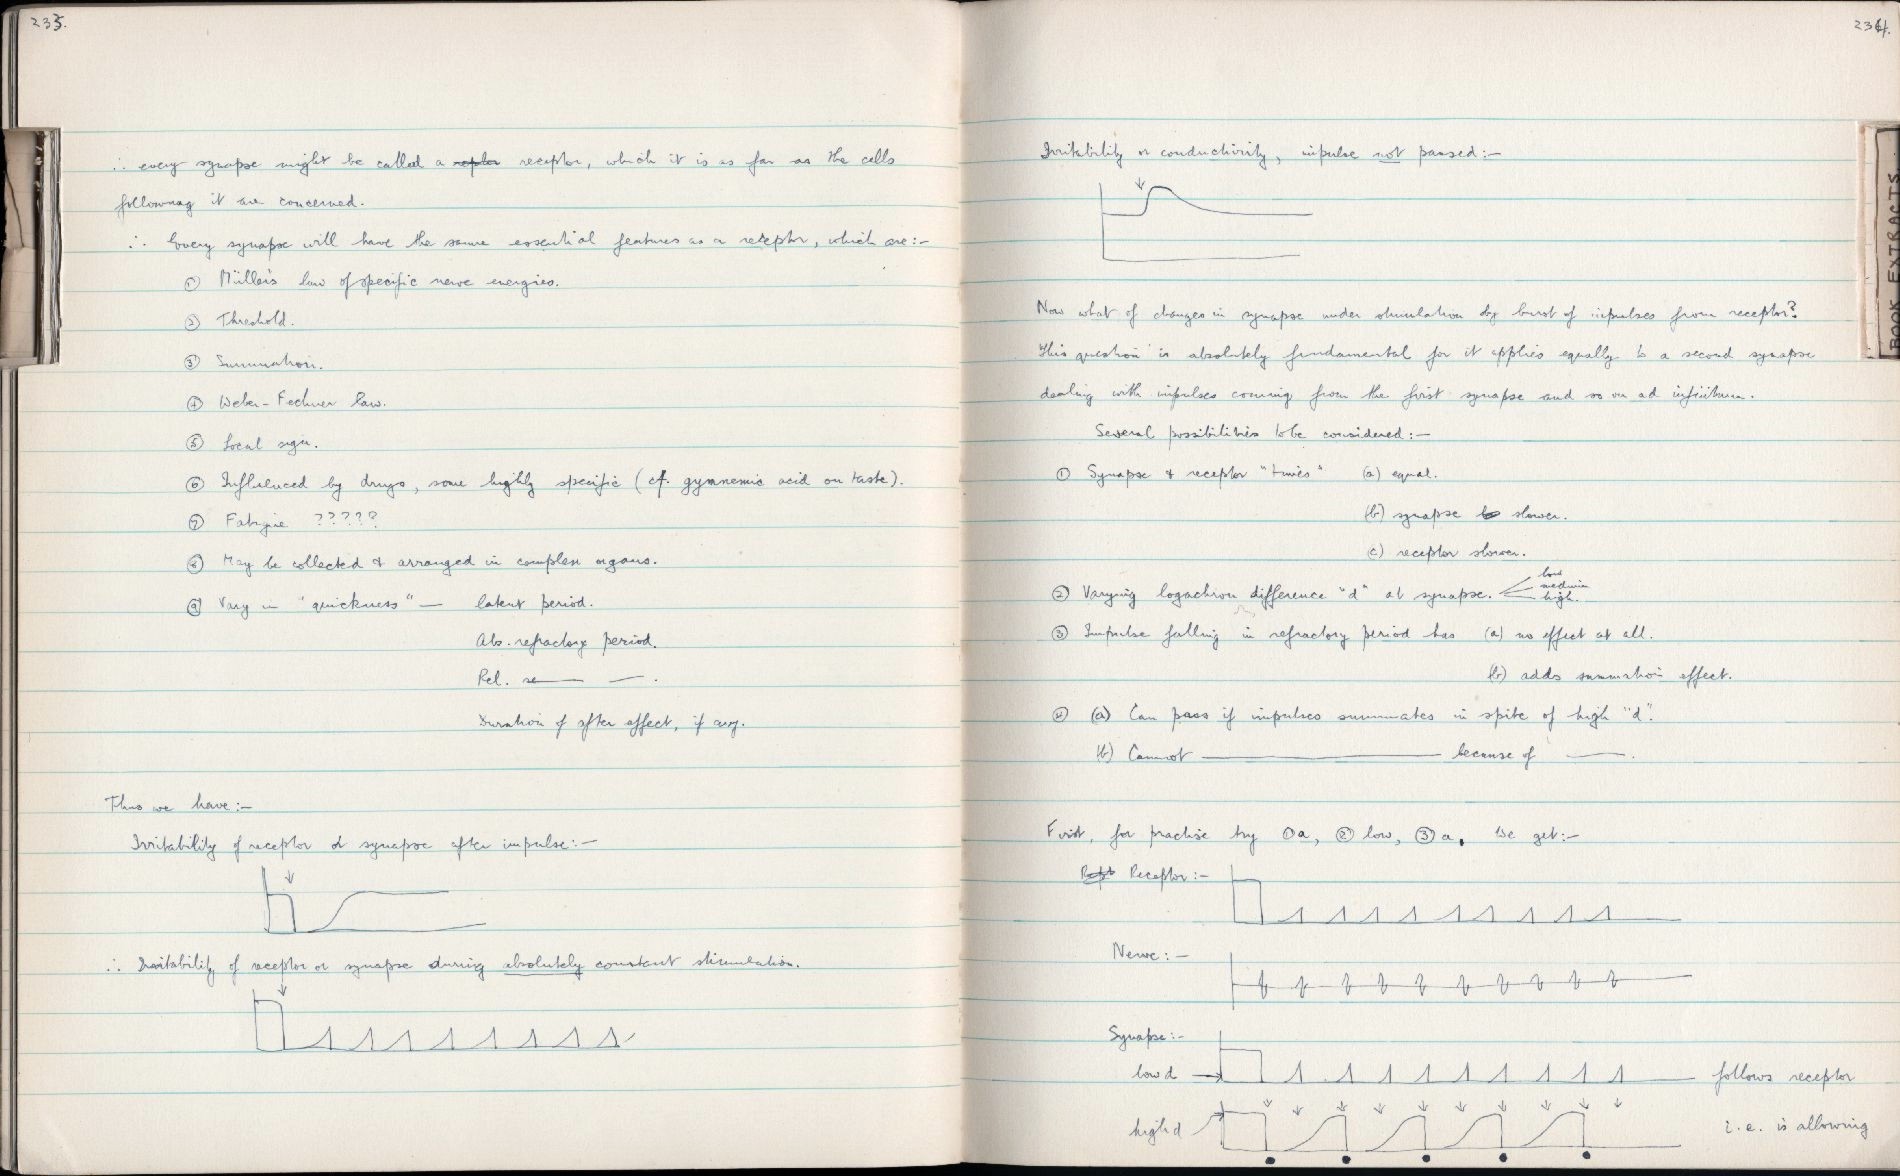 233.
∴ every synapse might be called a receptor, which it is as far as the cells
followinag it are concerned.
∴ Every synapse will have the same essential features as a receptor, which are:-
① Müller's law of specific nerve energies.
② Threshold.
③ Summation.
④ Weber-Fechner law.
⑤ Local sign.
⑥ Influenced by drugs, some highly specific (cf. gymnemic acid on taste).
⑦ Fatigue ?????
⑧ May be collected & arranged in complex organs.
⑨ Vary in "quickness" — latent period.
Abs. refractory period.
Rel. re—— —— .
Duration of after effect, if any.
Thus we have:-
Irritability of receptor or synapse after impulse:-
∴ Irritability of receptor or synapse during absolutely constant stimulation.
234.
Irritability or conductivity, impulse not passed:-
Now what of changes in synapse under stimulation by burst of impulses from receptor?
This question is absolutely fundamental for it applies equally to a second synapse
dealing with impulses coming from the first synapse and so on ad infinitum.
Several possibilities to be considered:-
① Synapse & receptor "times" (a) equal.
(b) synapse slower.
(c) receptor slower.
② Varying logachron difference "d" at synapse. low
medium
high.
③ Impulse falling in refractory period has (a) no effect at all.
(b) adds summation effect.
④ (a) Can pass if impulses summates in spite of high "d".
(b) Cannot —————— because of ——.
First, for practise try ①a, ② low, ③a. We get:-
Receptor:-
Nerve:-
Synapse:-
low d → follows receptor
high d i.e. is allowing
BOOK EXTRACTS